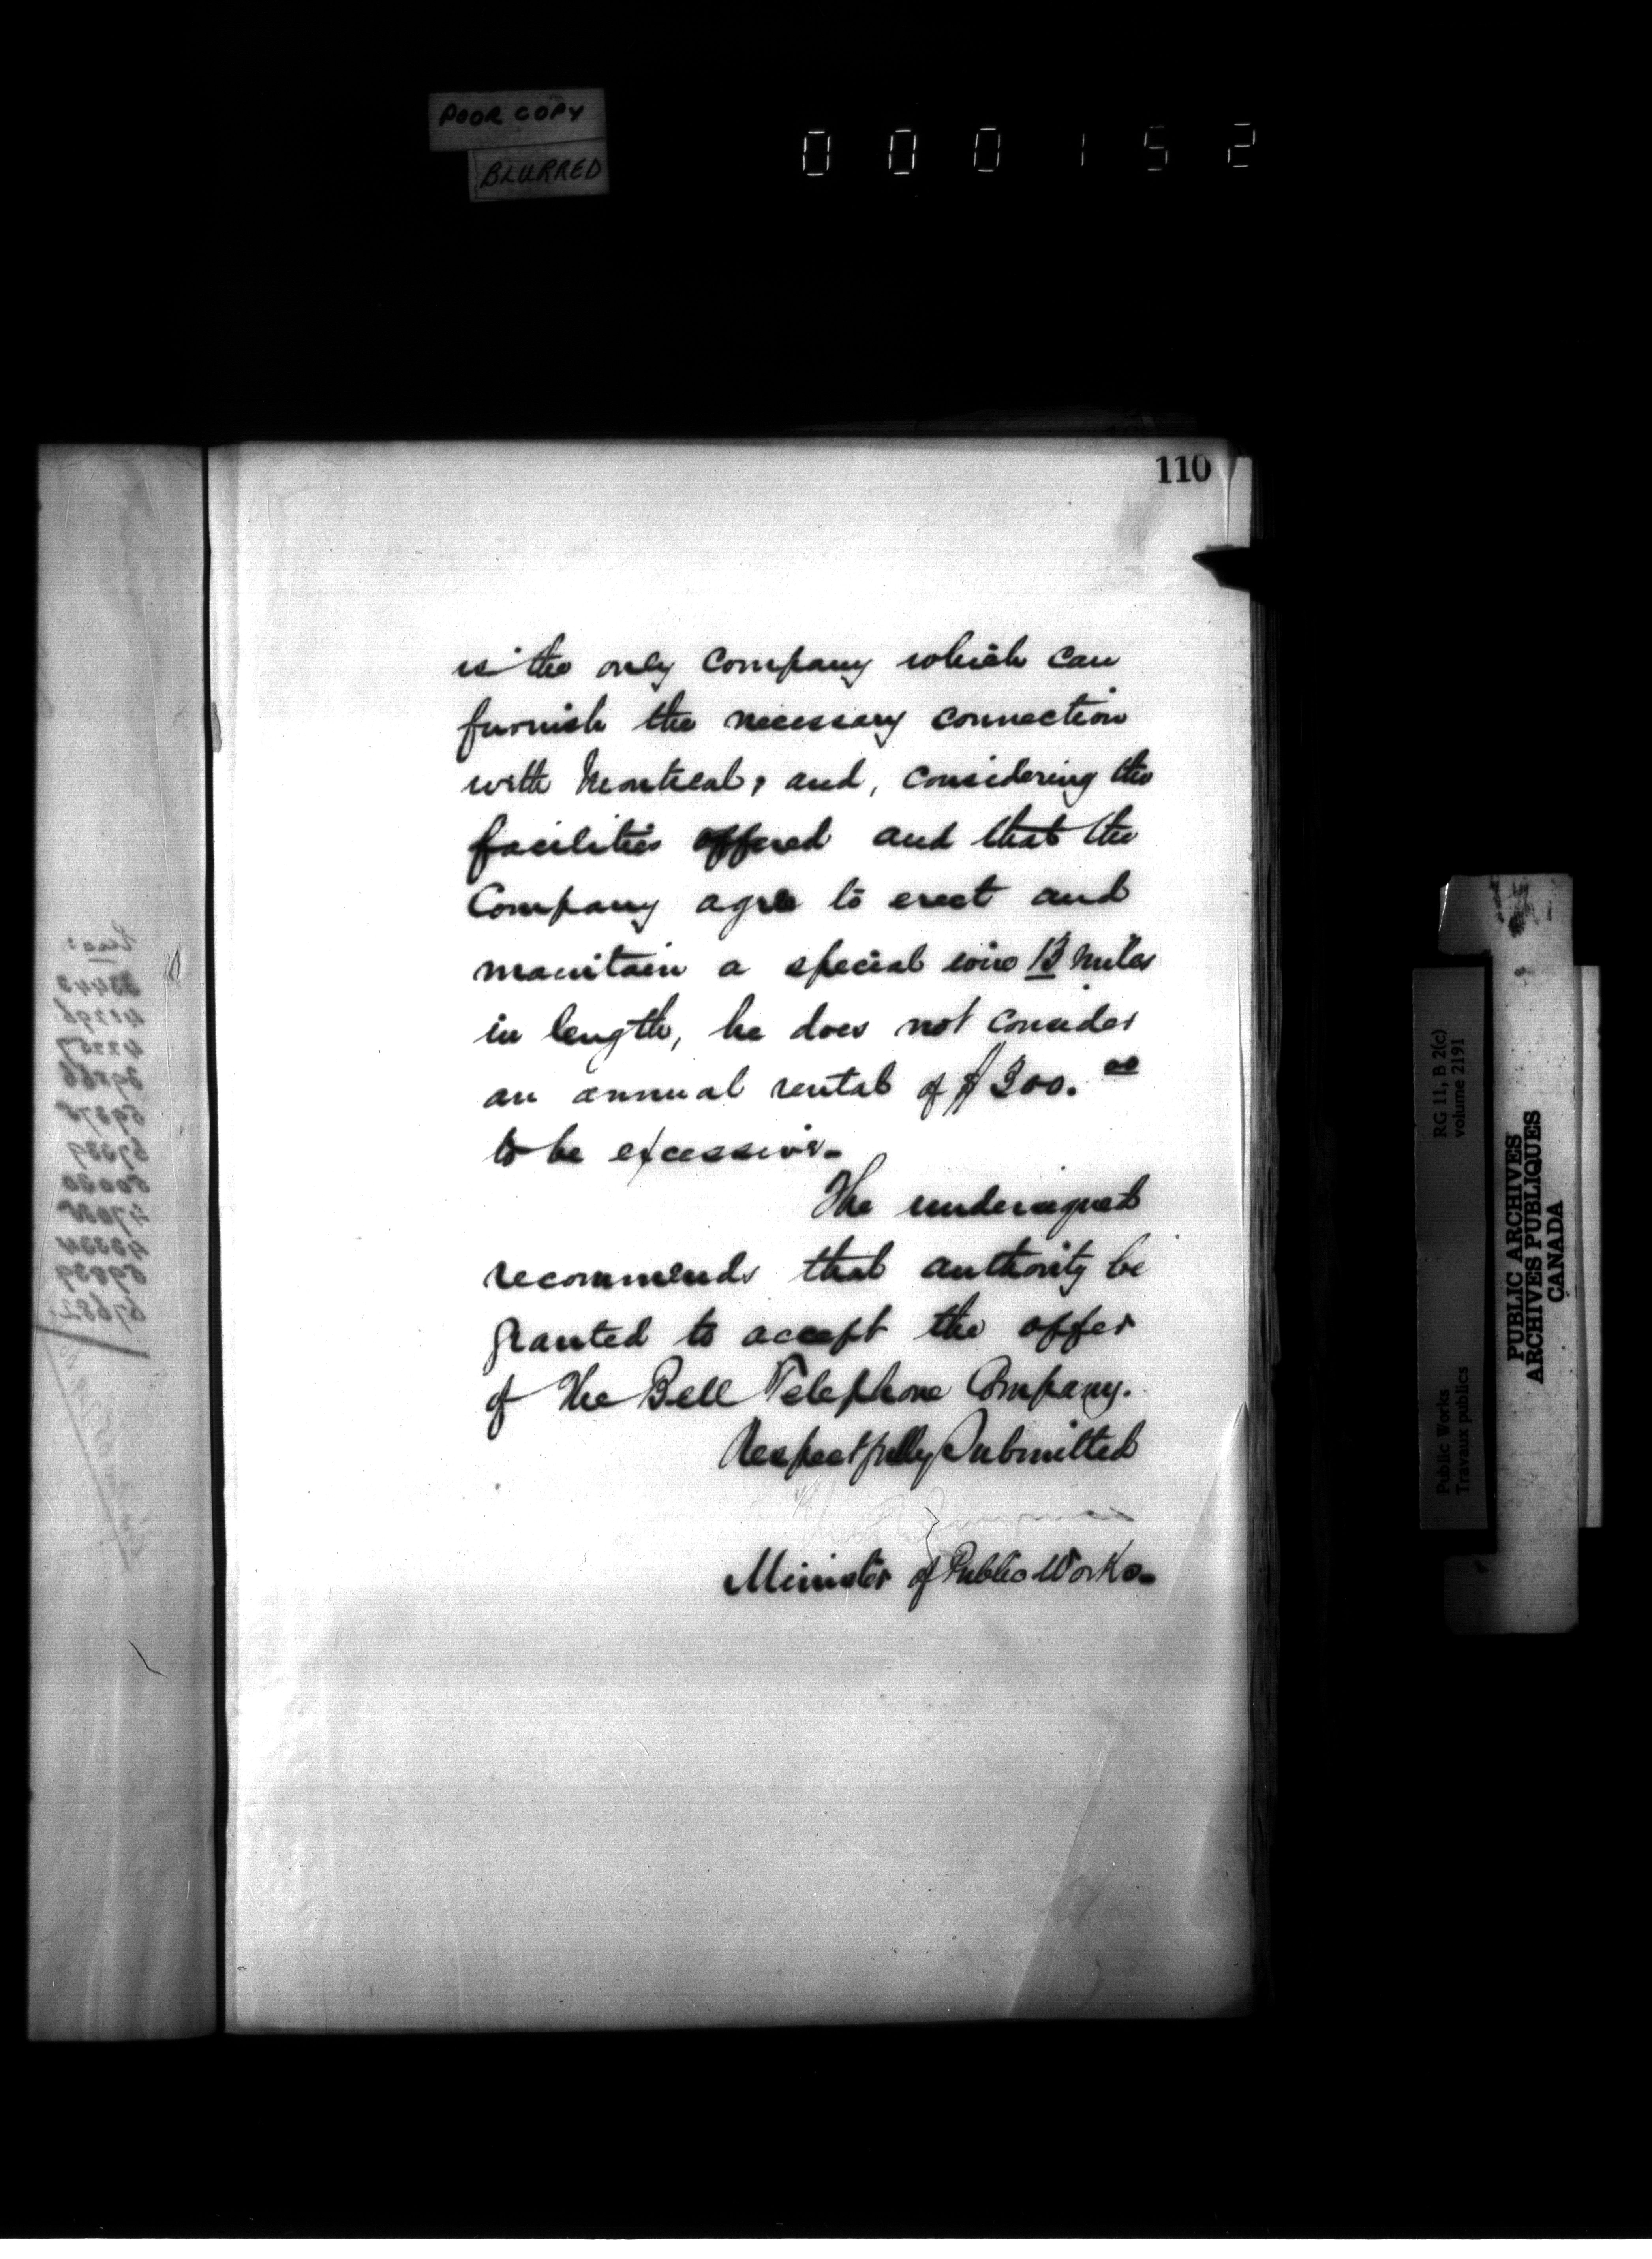 POOR COPY
BLURRED
000152
110
is the only Company which can
furnish the necessary connection
with Montreal, and, considering the
facilities offered and that the
Company agree to erect and
maintain a special wire 13 miles
in length, he does not consider
an annual rental of $300.00
to be excessive.
The undersigned
recommends that authority be
granted to accept the offer
of The Bell Telephone Company.
Respectfully Submitted
Minister of Public Works.
RG 11, B 2(c)
volume 2191
Public Works
Travaux publics
PUBLIC ARCHIVES
ARCHIVES PUBLIQUES
CANADA